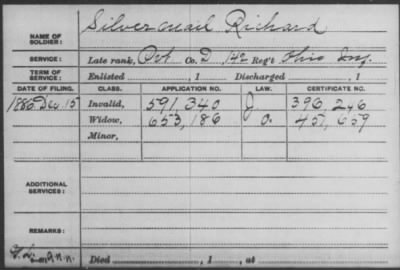 NAME OF SOLDIER: Silvernail Richard
SERVICE: Late rank, Pvt Co. D, 142 Reg't Ohio Inf.
TERM OF SERVICE: Enlisted , 1 Discharged , 1
DATE OF FILING. CLASS. APPLICATION NO. LAW. CERTIFICATE NO.
1886 Dec. 15 Invalid, 591,340 J. 396,246
Widow, 653,186 O. 457,659
Minor,
ADDITIONAL SERVICES:
REMARKS:
Died , 1 , at